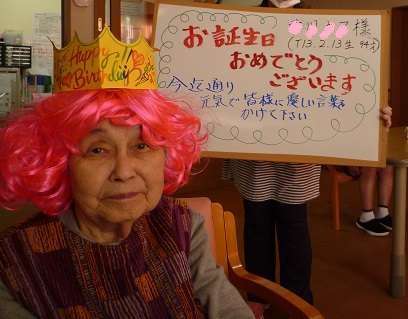 様
(T13.2.13生 94才)
お誕生日
おめでとう
ございます
今迄通り
元気で皆様に優しい言葉を
かけて下さい
Happy
Birthday!!